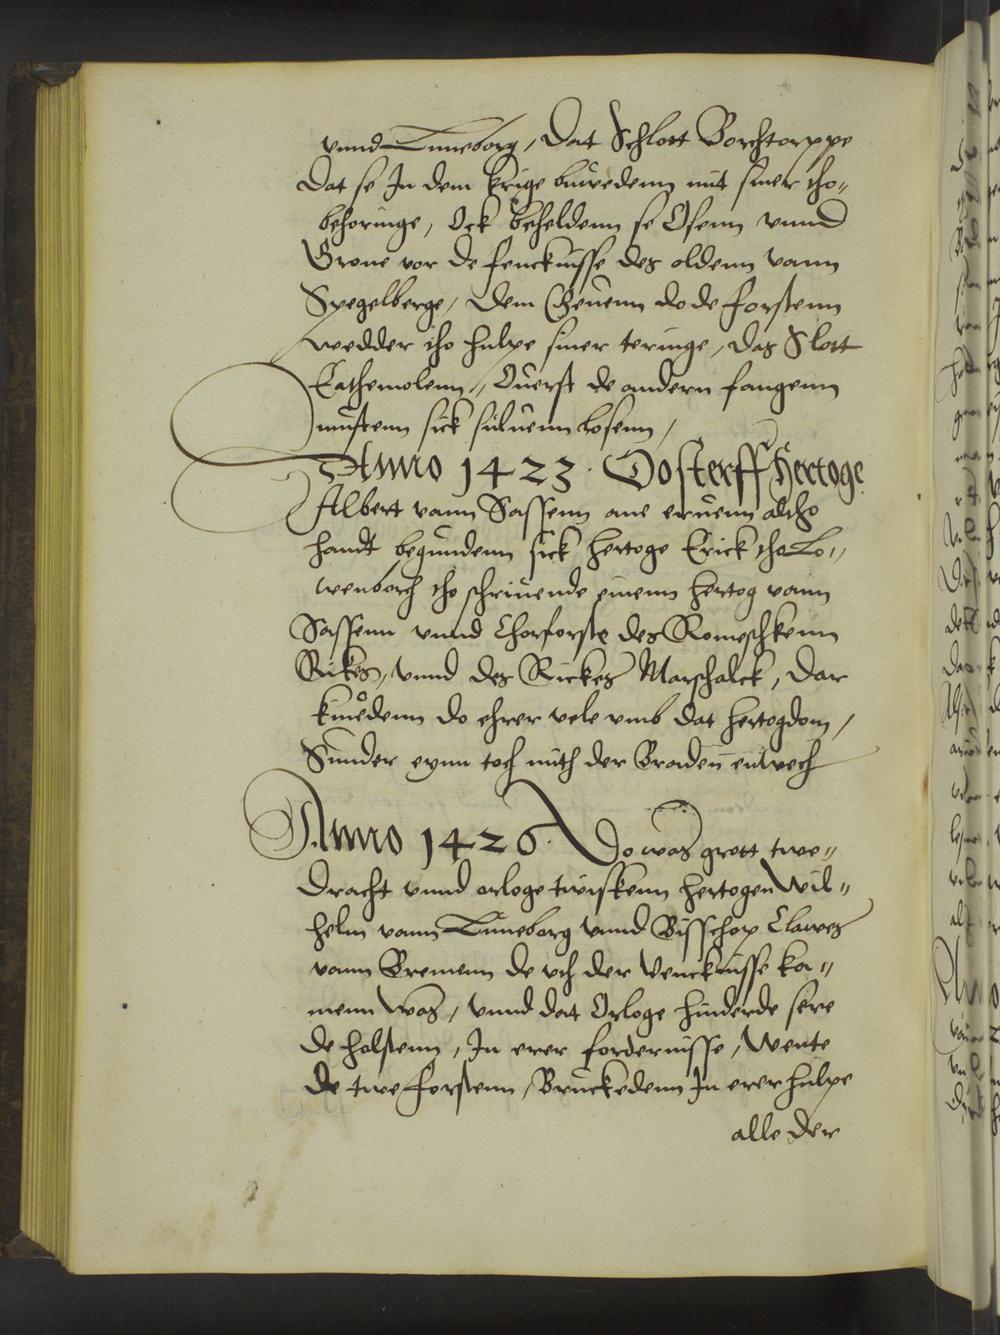 vnnd Luneborg, Dat Schlott Borchtorppe
Dat se In dem krige buwedenn mit siner tho⸗
behoringe, Ock beheldenn se Osenn vnnd
Grone vor de fencknisse des oldenn vann
Spegelberge, dem Geuenn do de forstenn
wedder tho hulpe siner teringe, das Slott
Lathemolenn, Ouerst de andern fangenn
mustenn sick suluenn losenn,
Anno 1423. Do sterff hertoge
Albert vann Sassenn ane eruenn altho
handt begundenn sick hertoge Erick tho Lo⸗
wenborch tho schriuende einenn hertog vann
Sassenn vnnd Chorforste des Romeschkenn
Rikes, vnnd des Rickes Marschalck, dar
kiuedenn do ehrer vele vmb dat hertogdom,
Sunder eynn toch mith der Braden enwech
Anno 1426. Do was grott twe⸗
dracht vnnd orloge twiskenn hertogen Wil⸗
helm vann Luneborg vnnd Bisschop Clawes
vann Bremenn de vth der Vencknisse ko⸗
menn was, vnnd dat Orloge hinderde sere
de holstenn, In erer fordernisse, Wente
de twe forstenn, Bruckedenn In erer hulpe
alle der